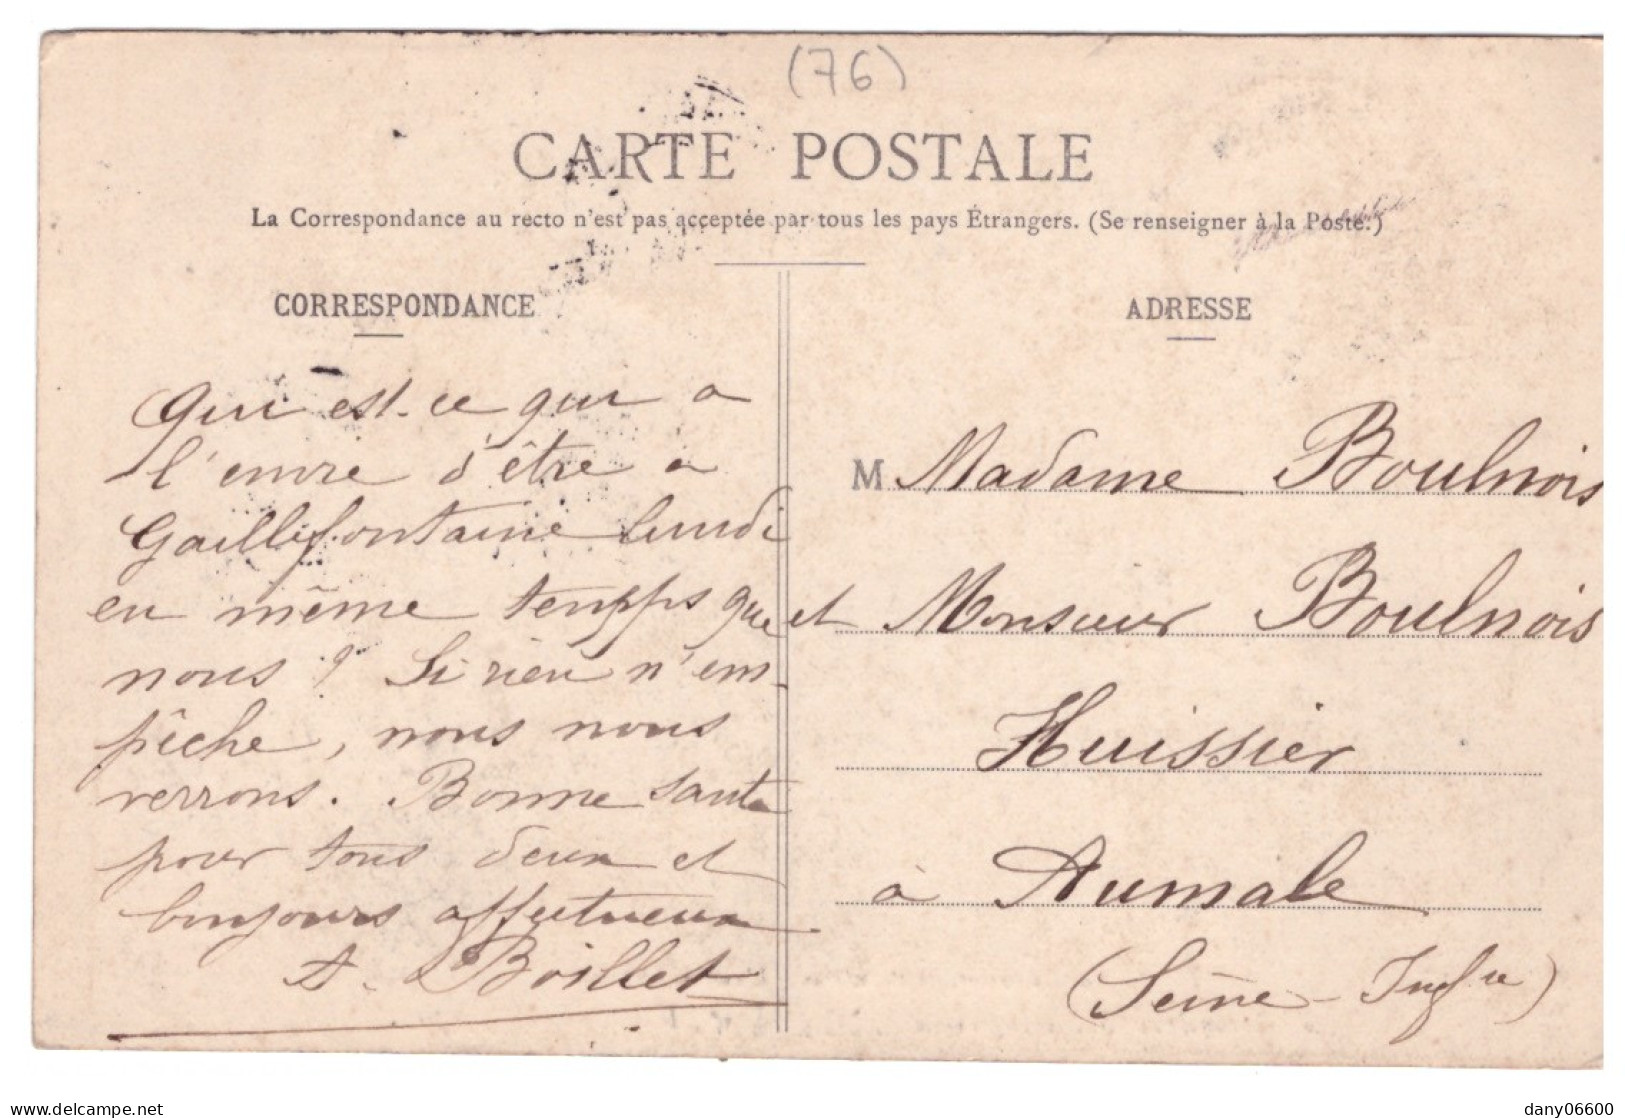 (76)
CARTE POSTALE
La Correspondance au recto n'est pas acceptée par tous les pays Étrangers. (Se renseigner à la Poste.)
CORRESPONDANCE
Qui est-ce qui a
l'envie d'être à
Gaillefontaine lundi
en même temps que
nous ? Si rien n'em-
pêche, nous nous
verrons. Bonne santé
pour tous deux et
toujours affectueux
A. Boillet
ADRESSE
M Madame Boulnois
et Monsieur Boulnois
Huissier
à Aumale
(Seine-Infre)
delcampe.net
dany06600